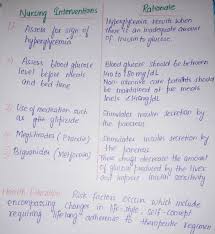 Nursing Interventions
Rationale
1) Assess for sign of
hyperglycemia
Hyperglycemia results when
there is an inadequate amount
of insulin to glucose.
Assess blood glucose
level before meals
and bed time
Blood glucose should be between
140 to 180 mg/dL
Non intensive care patients should
be maintained at pre meals
levels <140mg/dL
Use of medication such
as glipizide
Stimulates insulin secretion by
the pancreas
Meglitinides
Stimulates insulin secretion by
the pancreas
Biguanides (metformin)
These drugs decrease the amount
of glucose produced by the liver
and improve insulin sensitivity
Health Education
Risk factors which include
encompassing changes in life-style, self-concept
requiring lifelong adherence to therapeutic regimen